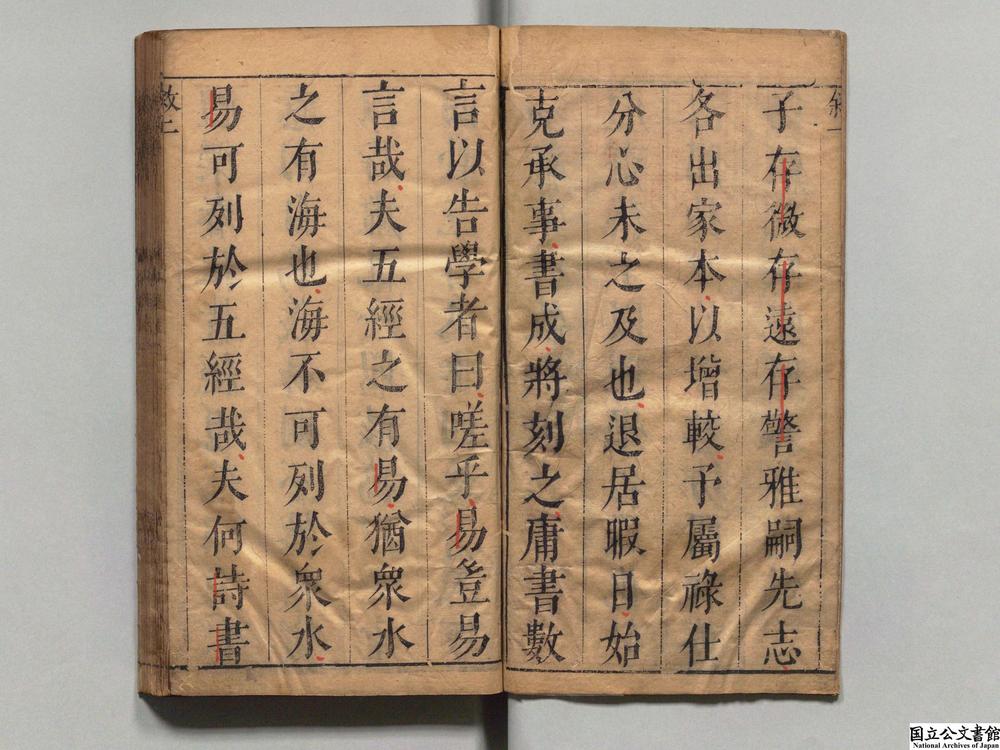 子存微存遠存警雅嗣先志
各出家本以增較予屬祿仕
分心未之及也退居暇日始
克承事書成將刻之庸書數
言以告學者曰嗟乎易豈易
言哉夫五經之有易猶衆水
之有海也海不可列於衆水
易可列於五經哉夫何詩書
敘二
国立公文書館
National Archives of Japan